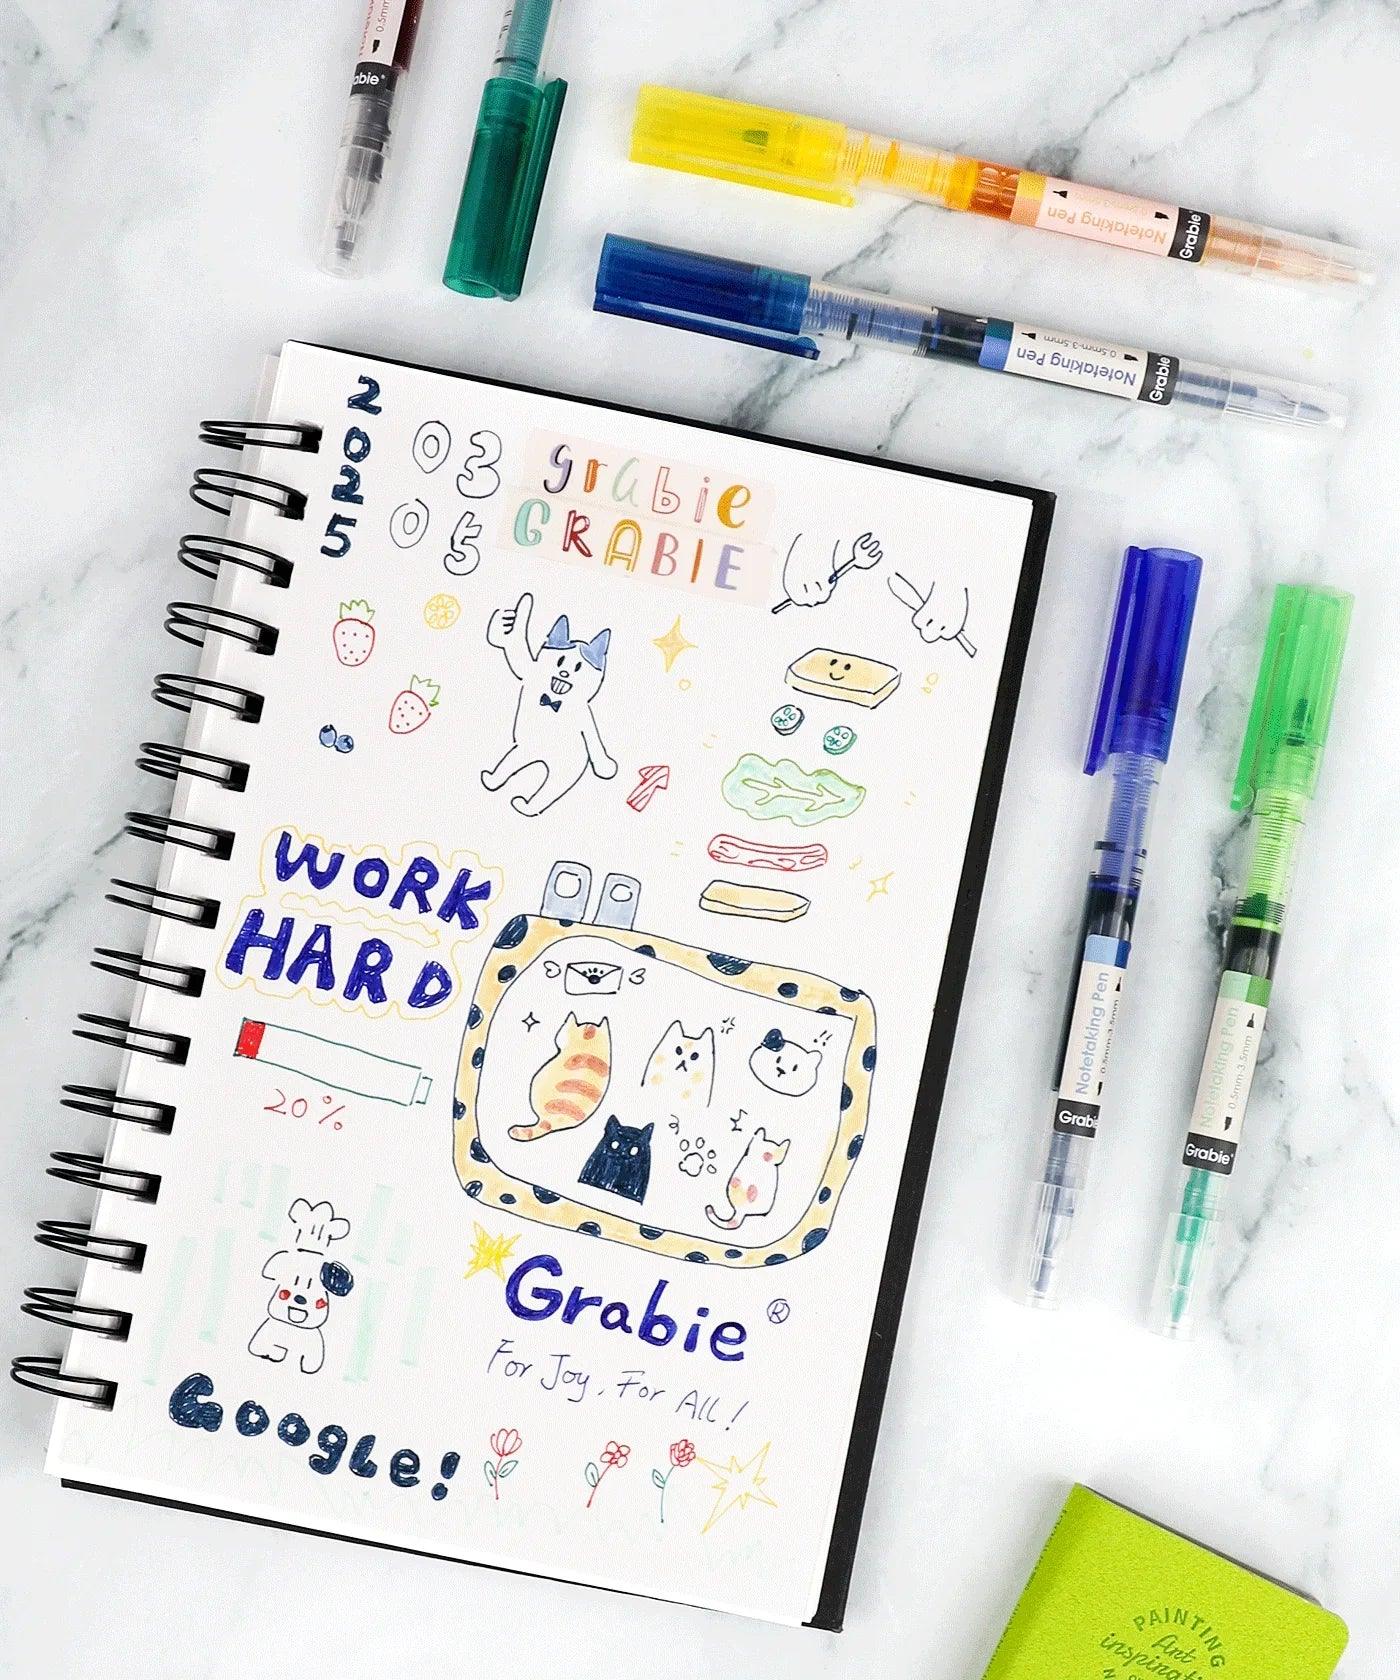 0.5mm
abie®
Notetaking Pen
Grabie®
Notetaking Pen
0.5mm-3.5mm
Grabie
2025
03
05
grabie
GRABIE
WORK
HARD
20%
Grabie®
For Joy, For All!
Google!
Notetaking Pen
0.5mm-3.5mm
Grabie
Notetaking Pen
0.5mm-3.5mm
Grabie®
PAINTING
Art